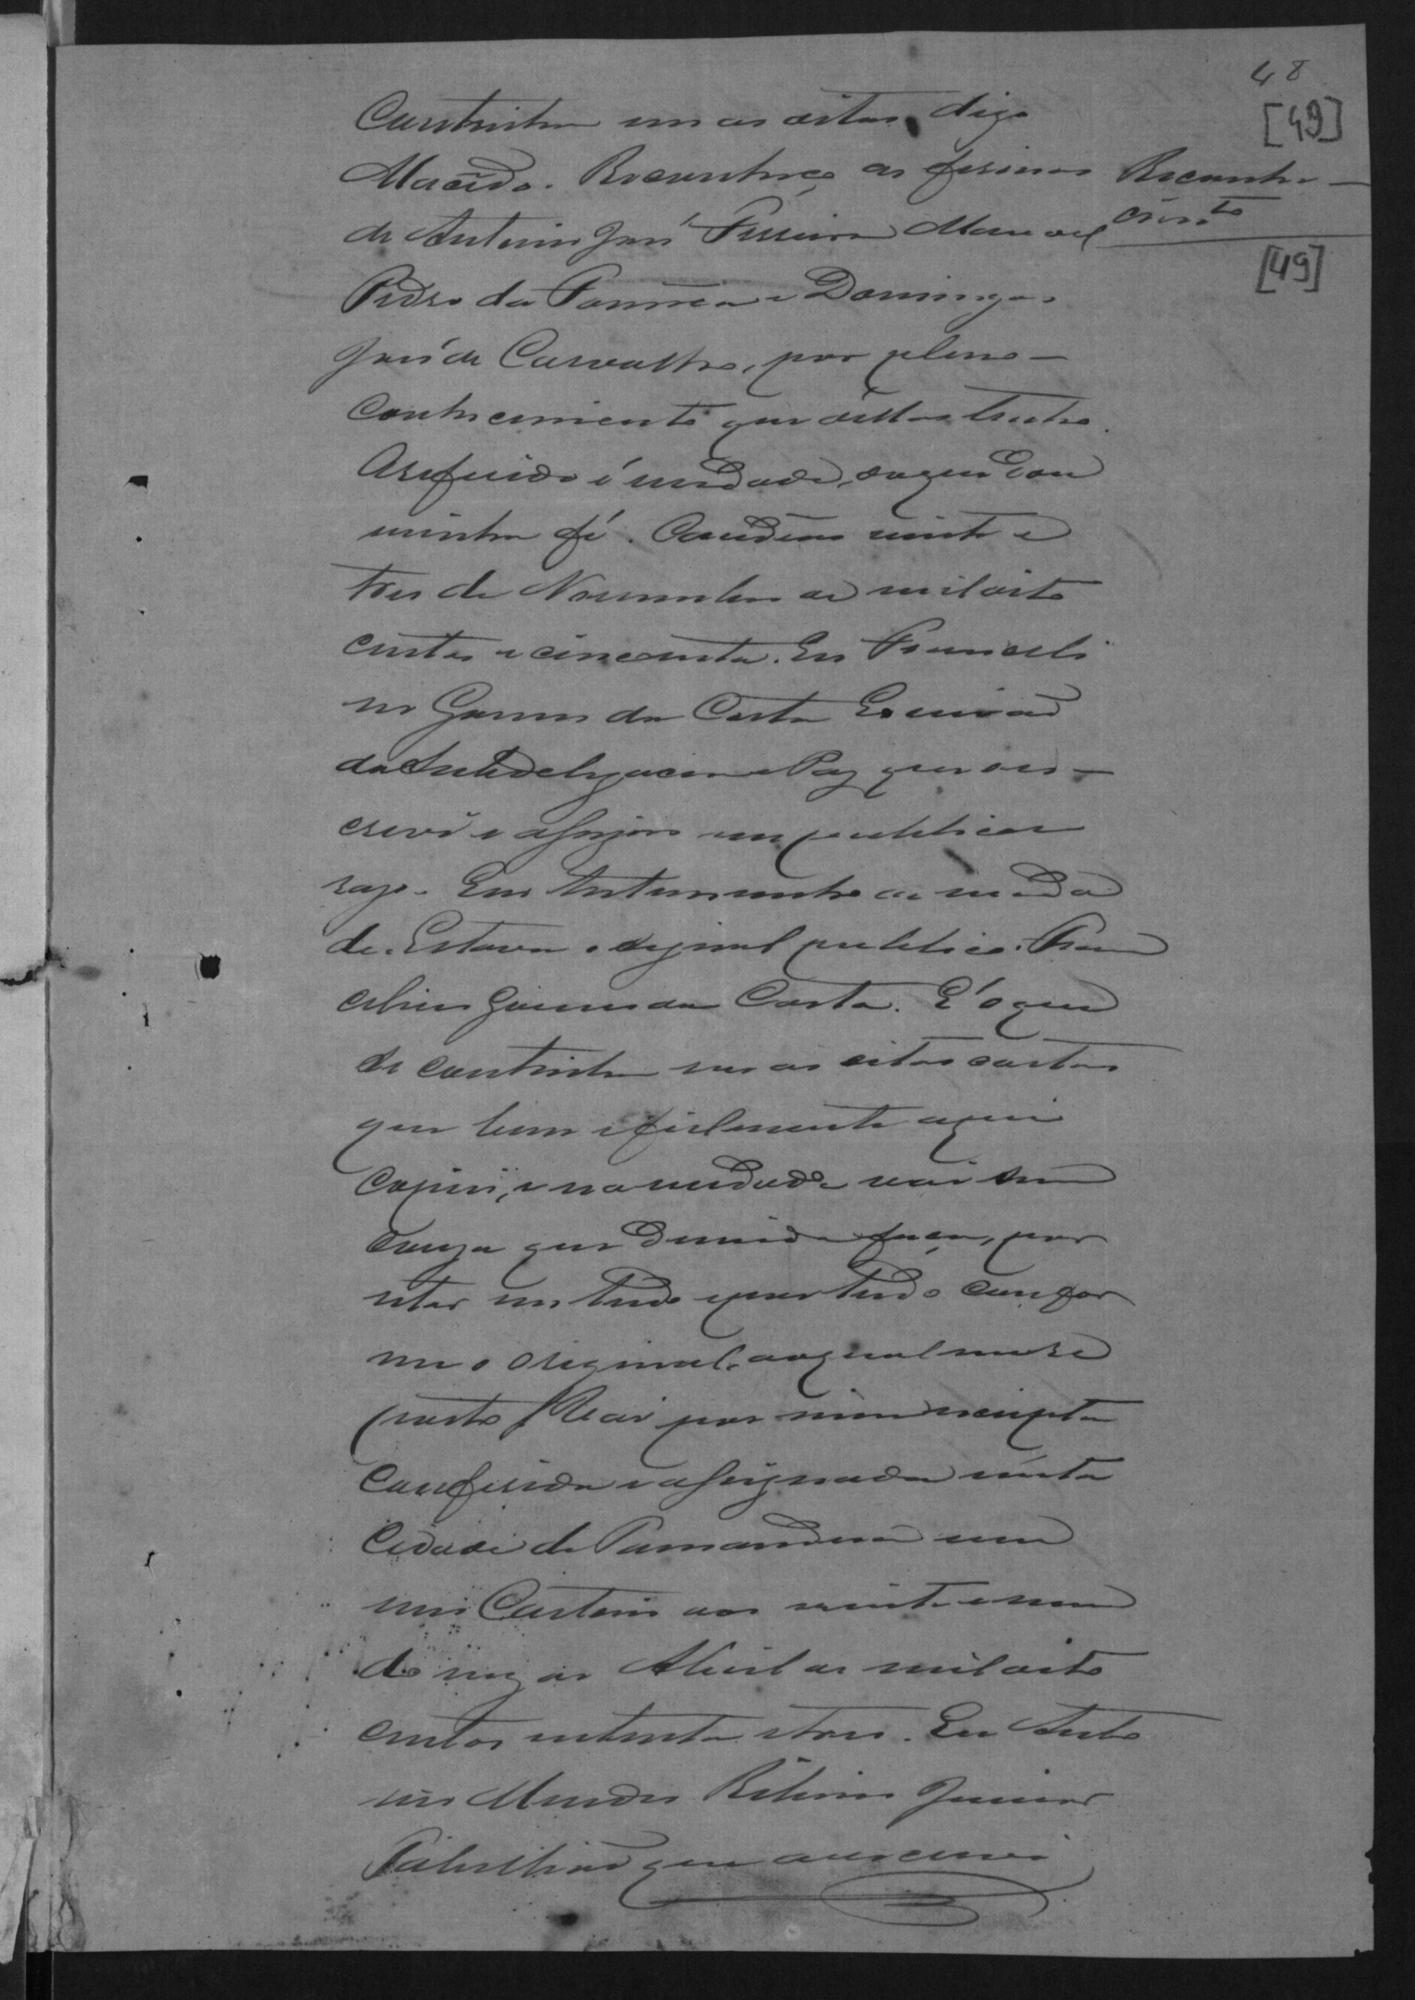 48
[49]
Continha nas ditas, digo
Macêdo. Reconheço as firmas
Reconhe-
cimto
de Antonio José Ferreira Manoel
[49]
Pedro da Fonseca e Domingos
José de Carvalho, por pleno
conhecimento que dellas tenho.
O referido é verdade, do que dou
minha fé. vinte e
tres de Novembro de mil oito
centos e cincoenta. Eu Franceli
no Gomes da Costa Escrivão
da Subdelegacia e Paz que es-
crevi e assigno em publico e
raso. Em testemunho de verda
de. Estava o signal publico. Fran
celino Gomes da Costa. E' o que
se continha nas ditas cartas
que bem e fielmente aqui
copiei, e na verdade vai sem
couza que duvida faça, por
estar em tudo e por tudo confor
me o original, ao qual me re
porto. Vai por mim escripta
conferida e assignada nesta
Cidade de Tamanduá em
meu Cartorio aos vinte e um
do mez de Abril de mil oito
centos setenta e tres. Eu Anto
nio Mendes Ribeiro Junior
Tabellião que a escrevi